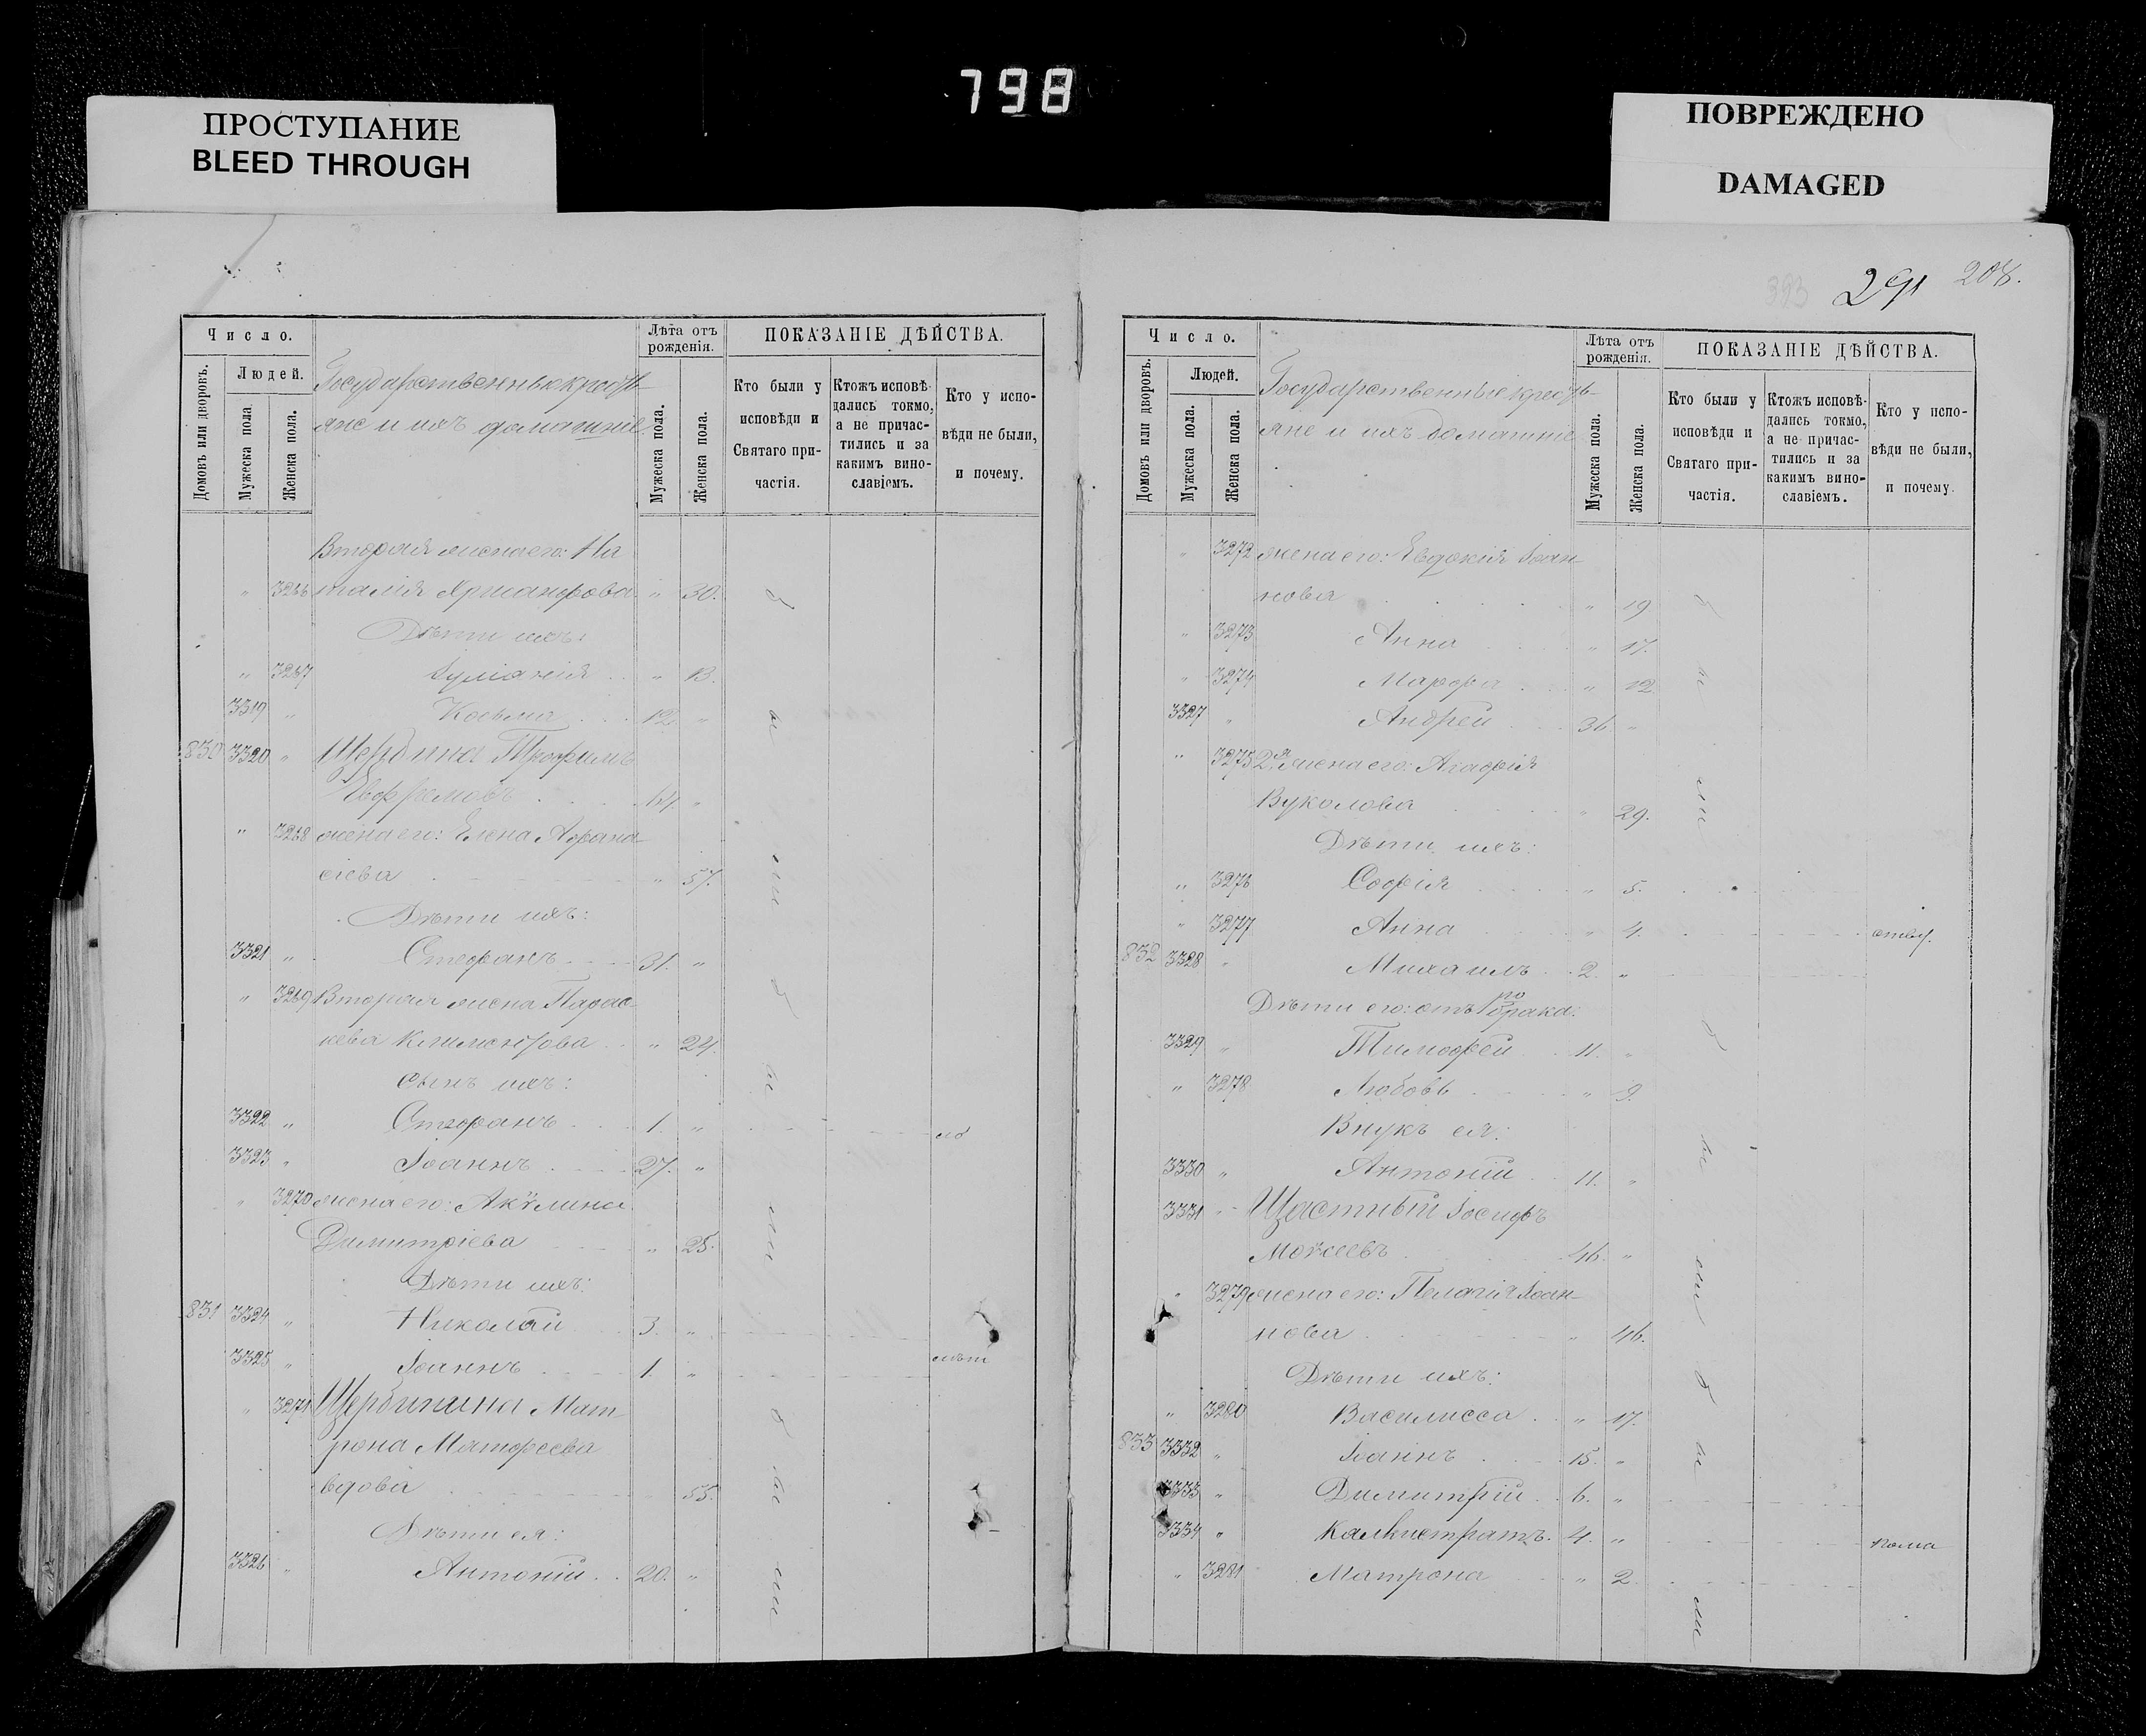 798
ПРОСТУПАНИЕ
BLEED THROUGH
ПОВРЕЖДЕНО
DAMAGED
291 208.
393
Число.
Людей.
Домовъ или дворовъ.
Мужеска пола.
Женска пола.
Государственные кресть-
яне и ихъ домашніе
Лѣта отъ рожденія.
Мужеска пола.
Женска пола.
ПОКАЗАНІЕ ДѢЙСТВА.
Кто были у исповѣди и Святаго причастія.
Ктожъ исповѣдались токмо, а не причастились и за какимъ винославіемъ.
Кто у исповѣди не были, и почему.
Вторая жена его: На
" 3266 талія Хрисанфова " 30.
Дѣти ихъ:
" 3267 Іуліанія " 13.
3319 " Косьма 12. "
830 3320 " Щербина Трофимъ
Ефремовъ 64 "
" 3268 жена его: Елена Афана
сіева " 57.
Дѣти ихъ:
3321 " Стефанъ 31. "
" 3269 Вторая жена Парас-
кева Климентова " 24.
Сынъ ихъ:
3322 " Стефанъ 1. "
3323 " Іоаннъ 27. "
" 3270 жена его: Акѵлина
Димитріева " 25.
Дѣти ихъ:
831 3324 " Николай 3. "
3325 " Іоаннъ 1. "
" 3271 Щербинина Мат-
рона Матфеева
вдова 55.
Дѣти ея:
3326 " Антоній 20. "
были
были
были
Число.
Людей.
Домовъ или дворовъ.
Мужеска пола.
Женска пола.
Государственные кресть-
яне и ихъ домашніе
Лѣта отъ рожденія.
Мужеска пола.
Женска пола.
ПОКАЗАНІЕ ДѢЙСТВА.
Кто были у исповѣди и Святаго причастія.
Ктожъ исповѣдались токмо, а не причастились и за какимъ винославіемъ.
Кто у исповѣди не были, и почему.
" 3272 жена его: Евдокія Іоан-
нова " 19
" 3273 Анна " 17.
" 3274 Марфа " 12.
3327 " Андрей 36 "
" 3275 2я жена его: Агафія
Вуколова " 29.
Дѣти ихъ:
" 3276 Софія " 5.
" 3277 Анна " 4.
832 3328 " Михаилъ 2. "
Дѣти его: отъ 1го брака:
3329 " Тимофей 11. "
" 3278 Любовь " 9.
Внукъ ея:
3330 " Антоній 11. "
3331 " Щастный Іосифъ
Моѵсеевъ 46. "
" 3279 жена его: Пелагія Іоан-
нова " 46.
Дѣти ихъ:
" 3280 Василисса " 17.
833 3332 " Іоаннъ 15. "
3333 " Димитрій 6. "
3334 " Каллистратъ. 4. "
" 3281 Матрона " 2.
были
были
были